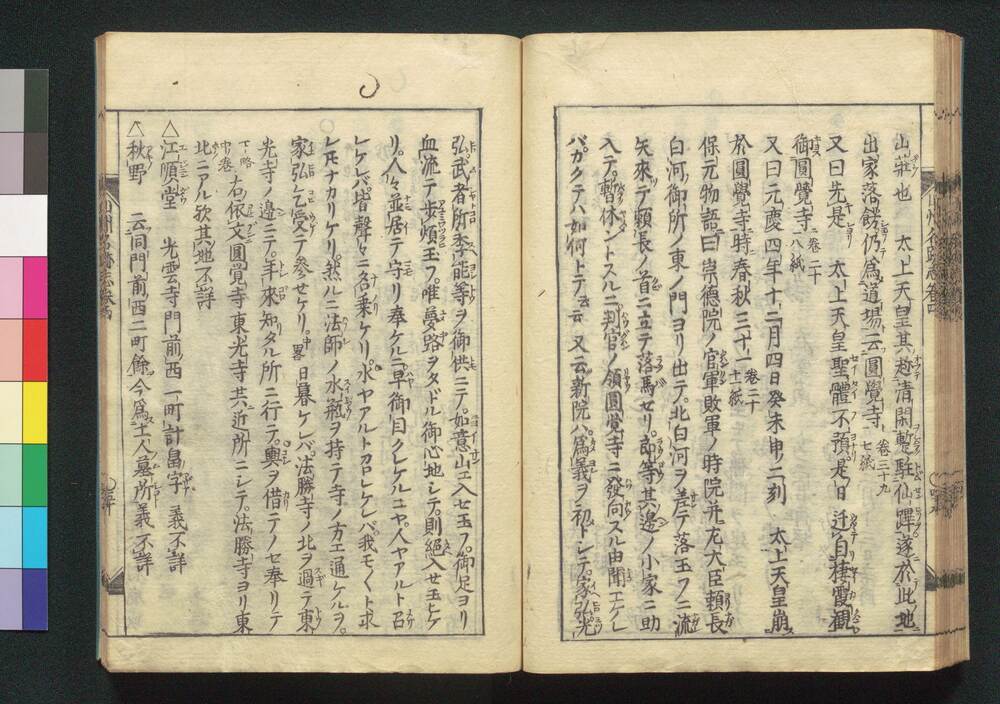 山莊也　太上天皇其趣清閑暫駐仙蹕遂於此地
出家落餝仍爲道場云圓覺寺　卷三十九七紙
又曰先是　太上天皇聖體不預是日　迁自棲霞觀
御圓覺寺　卷二十八紙
又曰元慶四年十二月四日癸未申二刻　太上天皇崩
於圓覺寺時春秋三十一　卷三十十一紙
保元物語曰崇德院ノ官軍敗軍ノ時院并左大臣頼長
白河御所ノ東ノ門ヨリ出テ北白河ヲ差テ落玉フニ流
矢來テ頼長ノ首ニ立テ落馬セリ。郎等其邊ノ小家ニ助
入テ。暫休ントスルニ判官ノ領圓覚寺ニ發向スル由聞エケレ
バ。カクテハ如何トテ云云　又云新院ハ。爲義ヲ初トシテ。家弘光
弘武者所季能等ヲ御供ニテ。如意山エ入セ玉フ。御足ヨリ
血流テ歩煩玉フ。唯夢路ヲタドル御心地シテ。則絕入セ玉ヒケ
リ。人々並居テ守リ奉ケルニ早御目クレケルニヤ。人ヤアルト召
レケレバ皆聲々ニ名乗ケリ。水ヤアルトカ召レケレバ我モ〱ト求
レ𪜈ナカリケリ。然ルニ法師ノ水瓶ヲ持テ寺ノ方エ通ケルヲ。
家弘乞受テ參セケリ。中畧日暮ケレバ。法勝寺ノ北ヲ過テ東
光寺ノ邊ニテ。年來知タル所ニ行テ。輿ヲ借テノセ奉リテ
下略中卷　右依文圓覚寺東光寺共近所ニシテ。法勝寺ヨリ東
北ニアル欤其地不詳
△江順堂　光雲寺門前ノ西一町計畠字　義不詳
△秋野　云同門前西二町餘今爲土人墓所義不詳